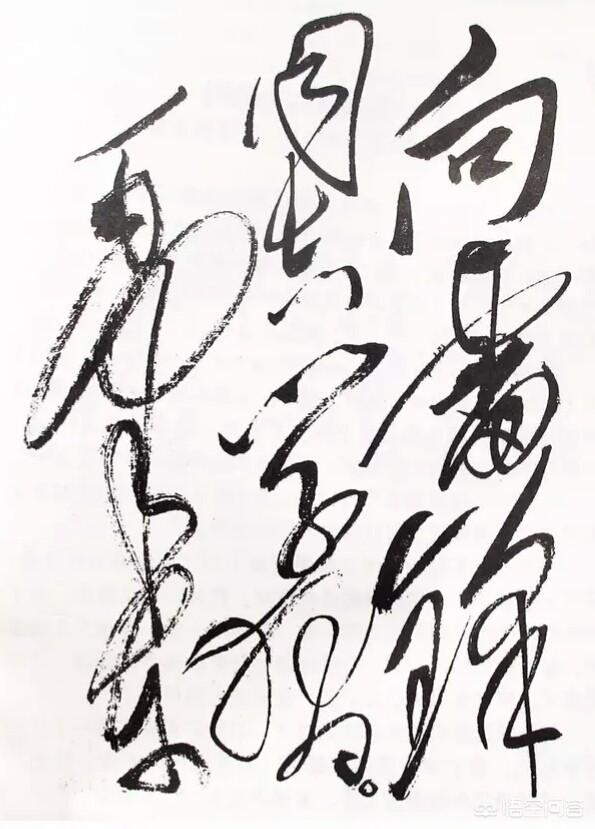 向雷锋
同志学习。
毛泽东
悟空问答